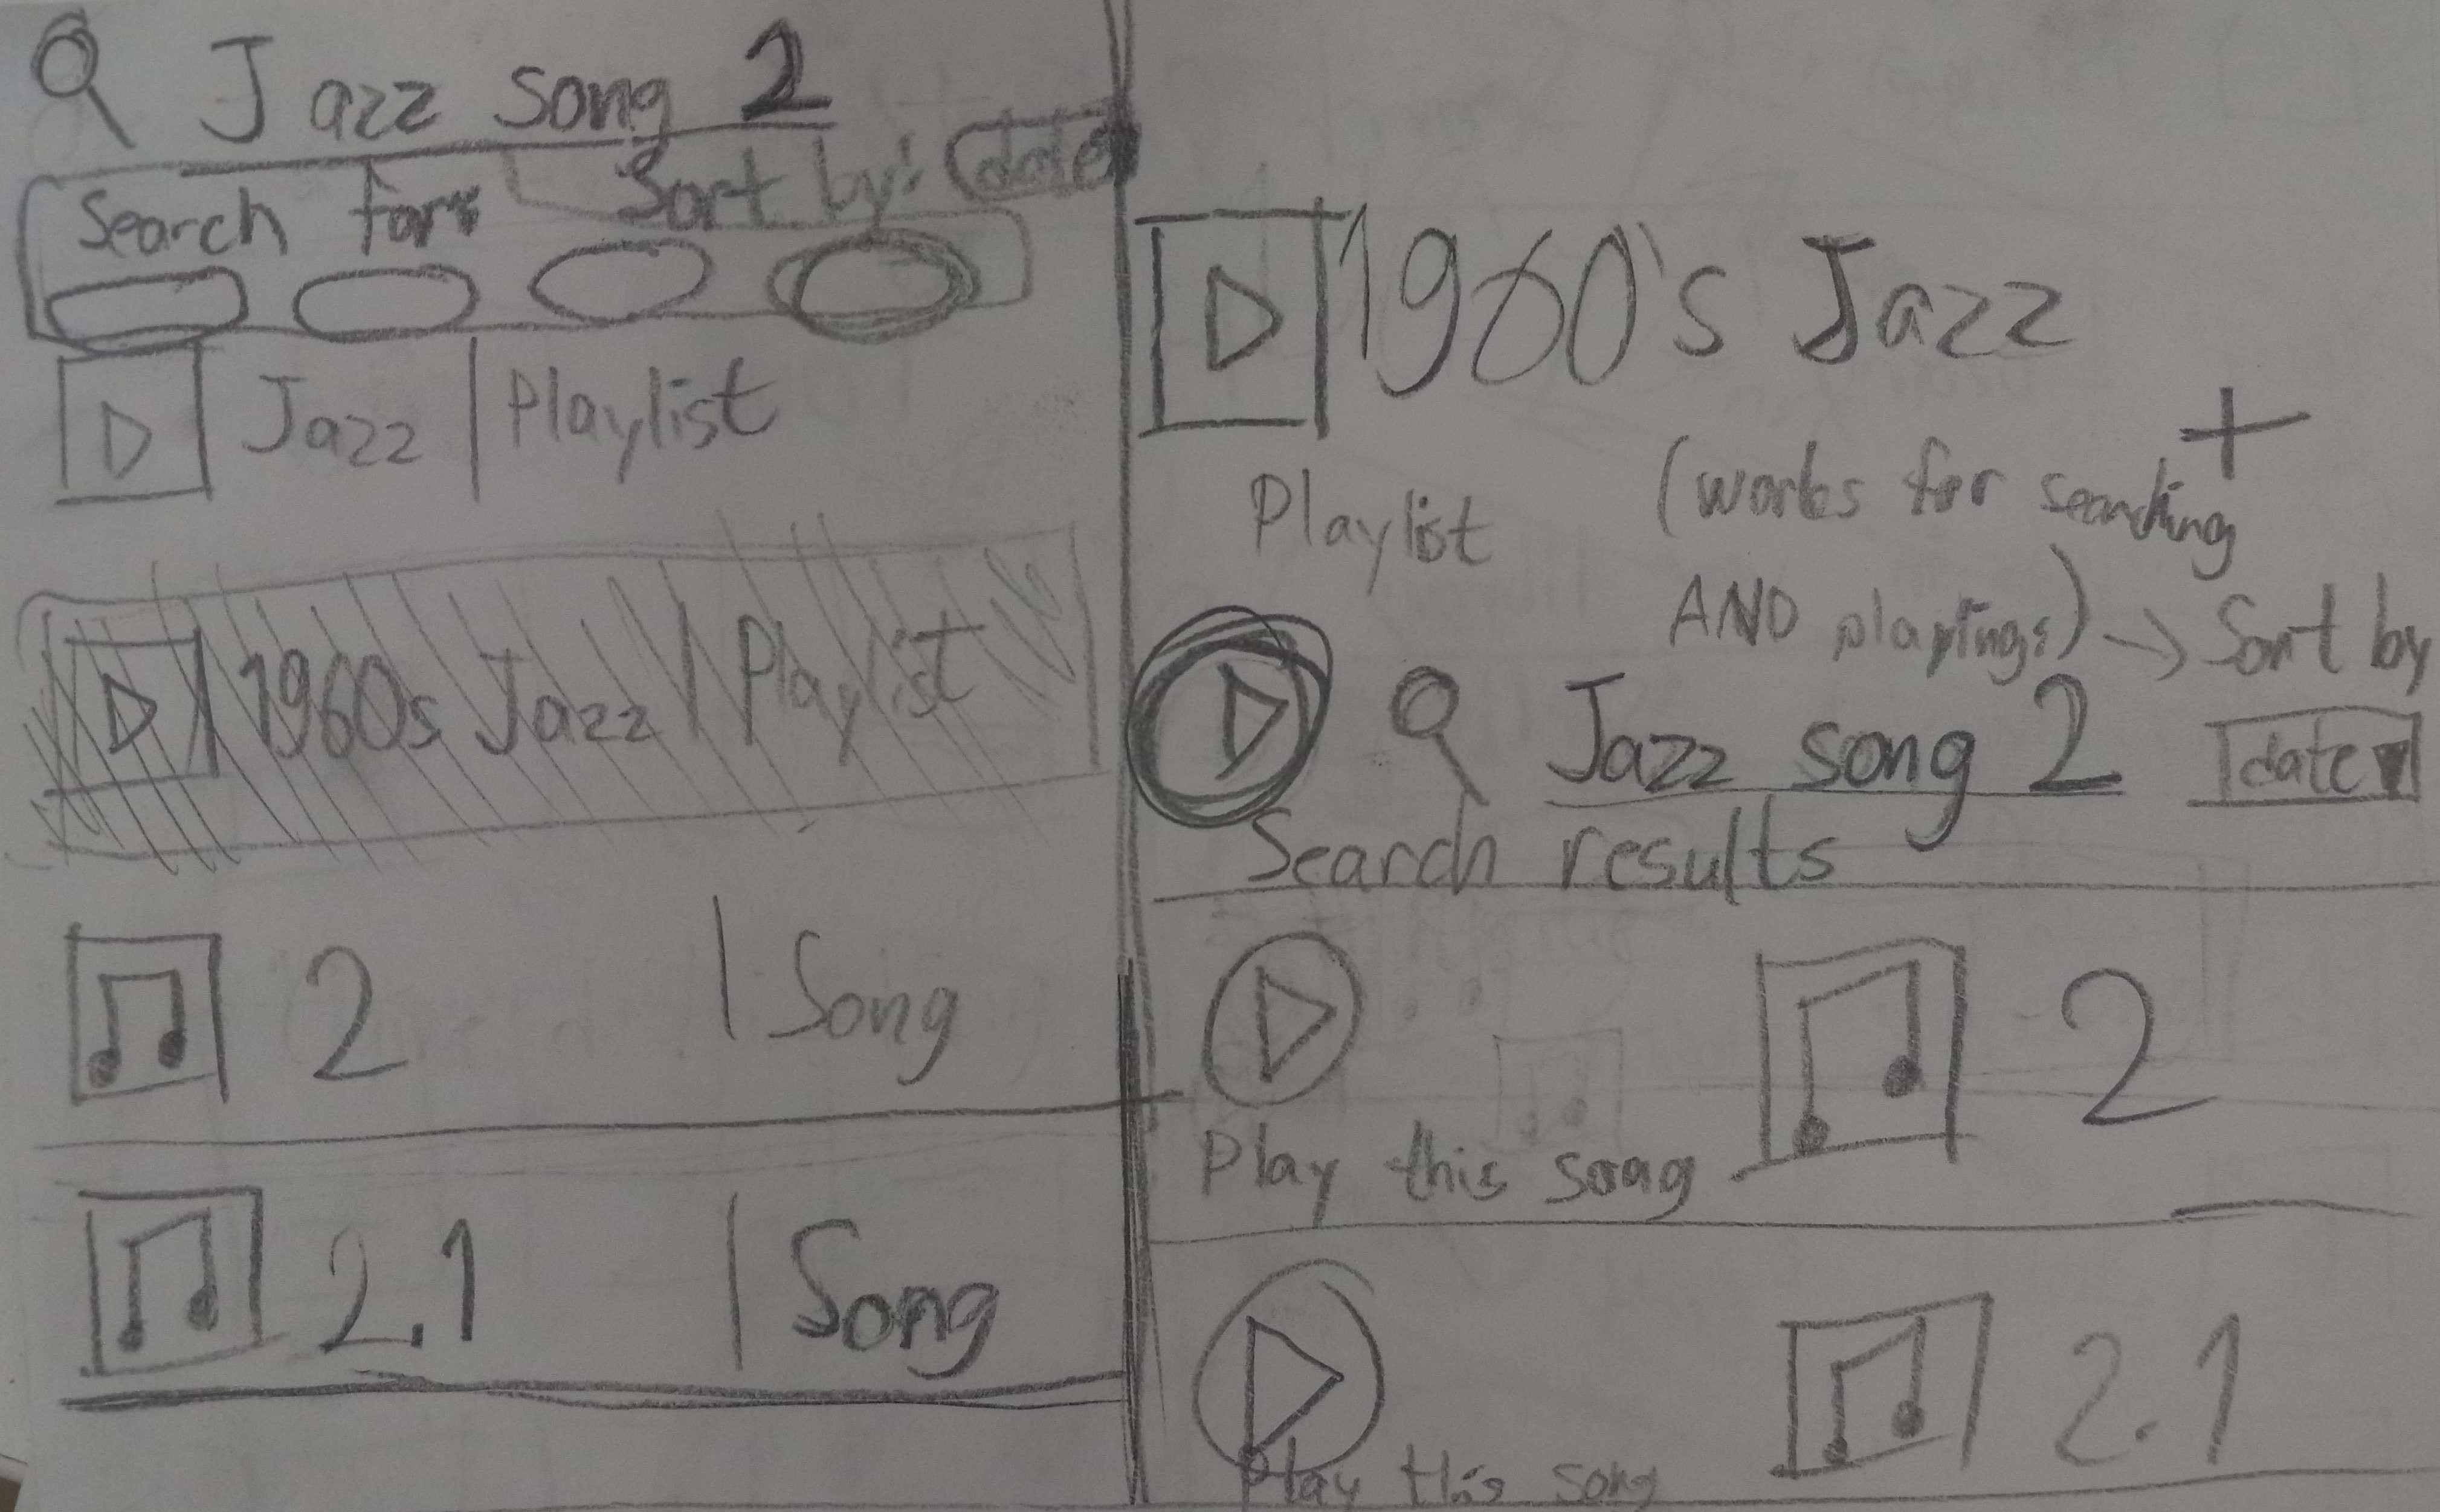 Jazz song 2
Search for:
Sort by: date
Jazz | Playlist
1960s Jazz | Playlist
2 | Song
2.1 | Song
1960's Jazz
+
Playlist
(works for searching
AND playings) → Sort by
Jazz song 2
date
Search results
2
Play this song
2.1
Play this song